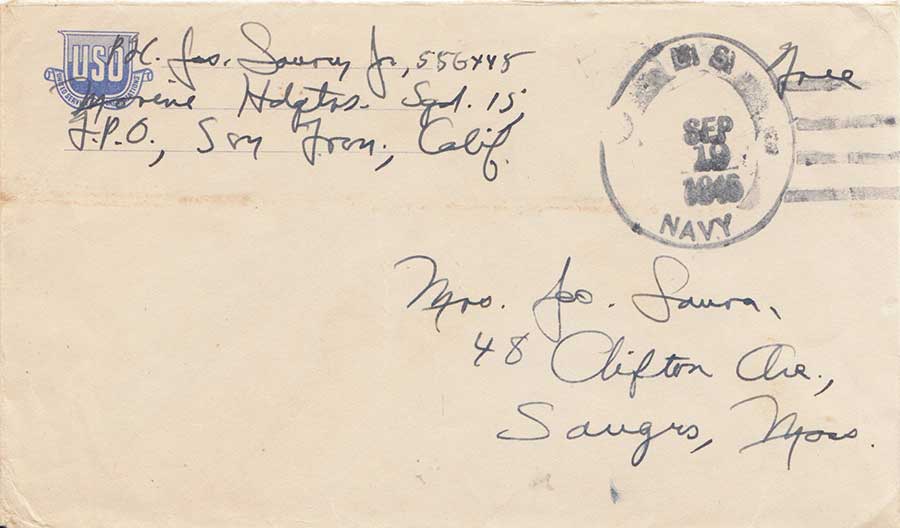 USO
Jas. Saurey Jr, 556448
Marine Hdqtrs. Sqd. 15,
F.P.O., San Fran, Calif.
Free
U S
SEP
19
1945
NAVY
Mrs. Jas. Saura,
48 Clifton Ave.,
Saugus, Mass.